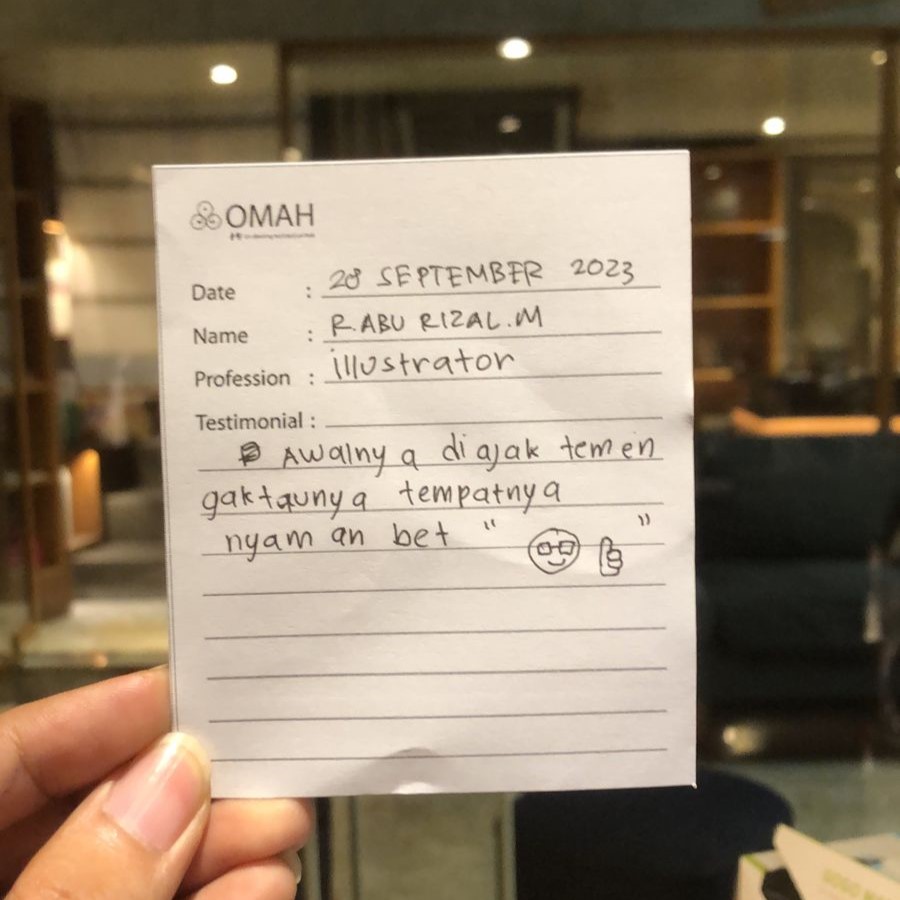 OMAH
Date : 28 SEPTEMBER 2023
Name : R.ABU RIZAL.M
Profession : illustrator
Testimonial :
Awalnya diajak temen
gaktaunya tempatnya
nyaman bet “ ”